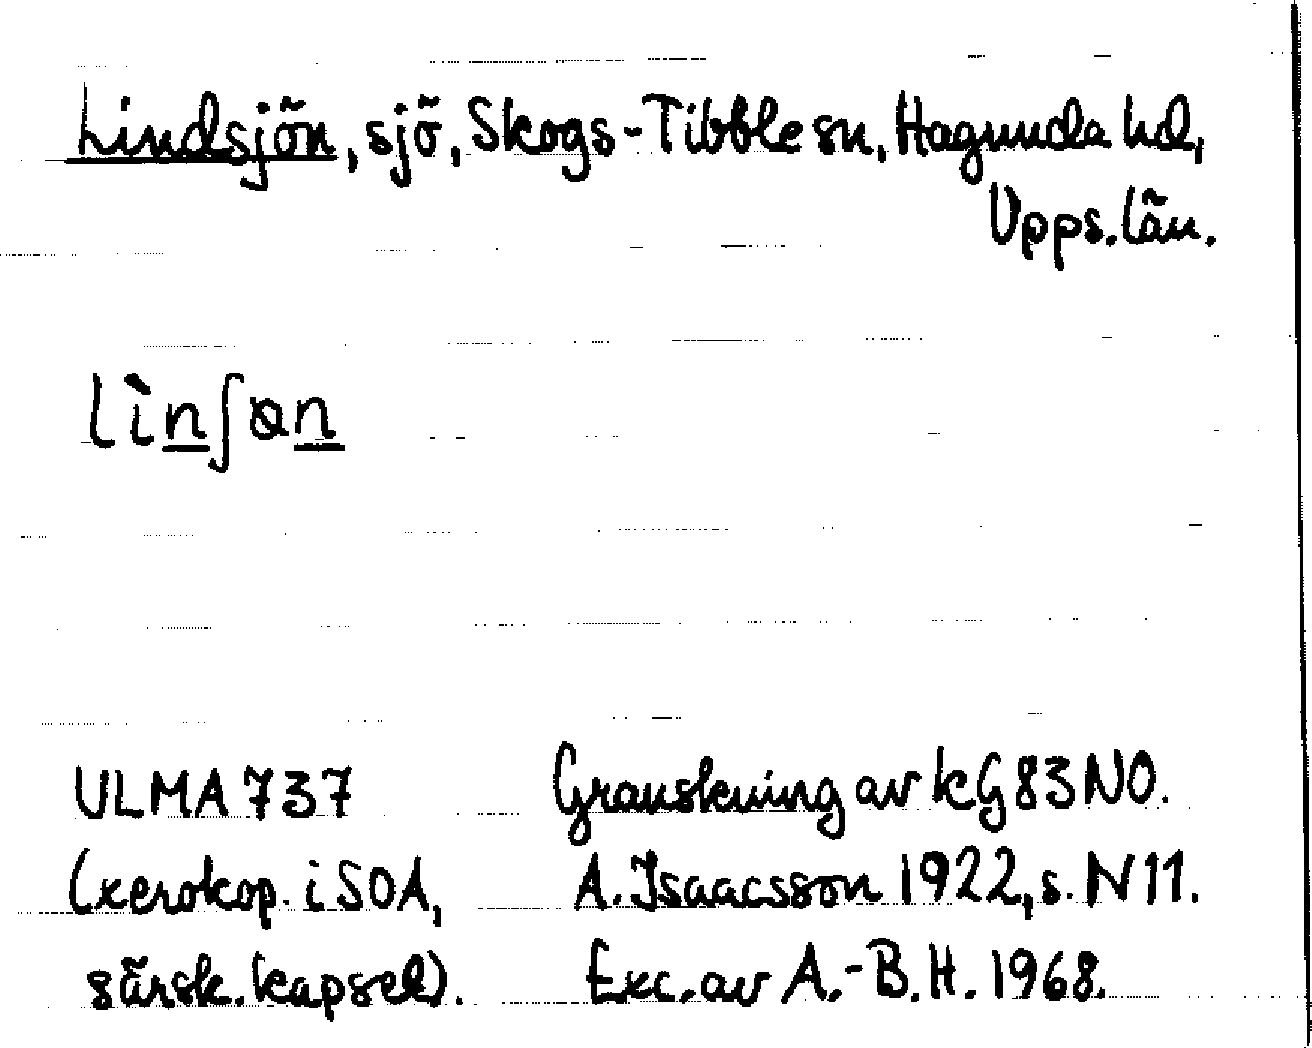 Lindsjön, sjö, Skogs-Tibble sn, Hagunda hd,
Upps. län.
lìnʃɵn
ULMA 737
(xerokop. i SOA,
särsk. kapsel).
Granskning av kG 83 NO.
A. Isaacsson 1922, s. N 11.
Exc. av A.-B.H. 1968.